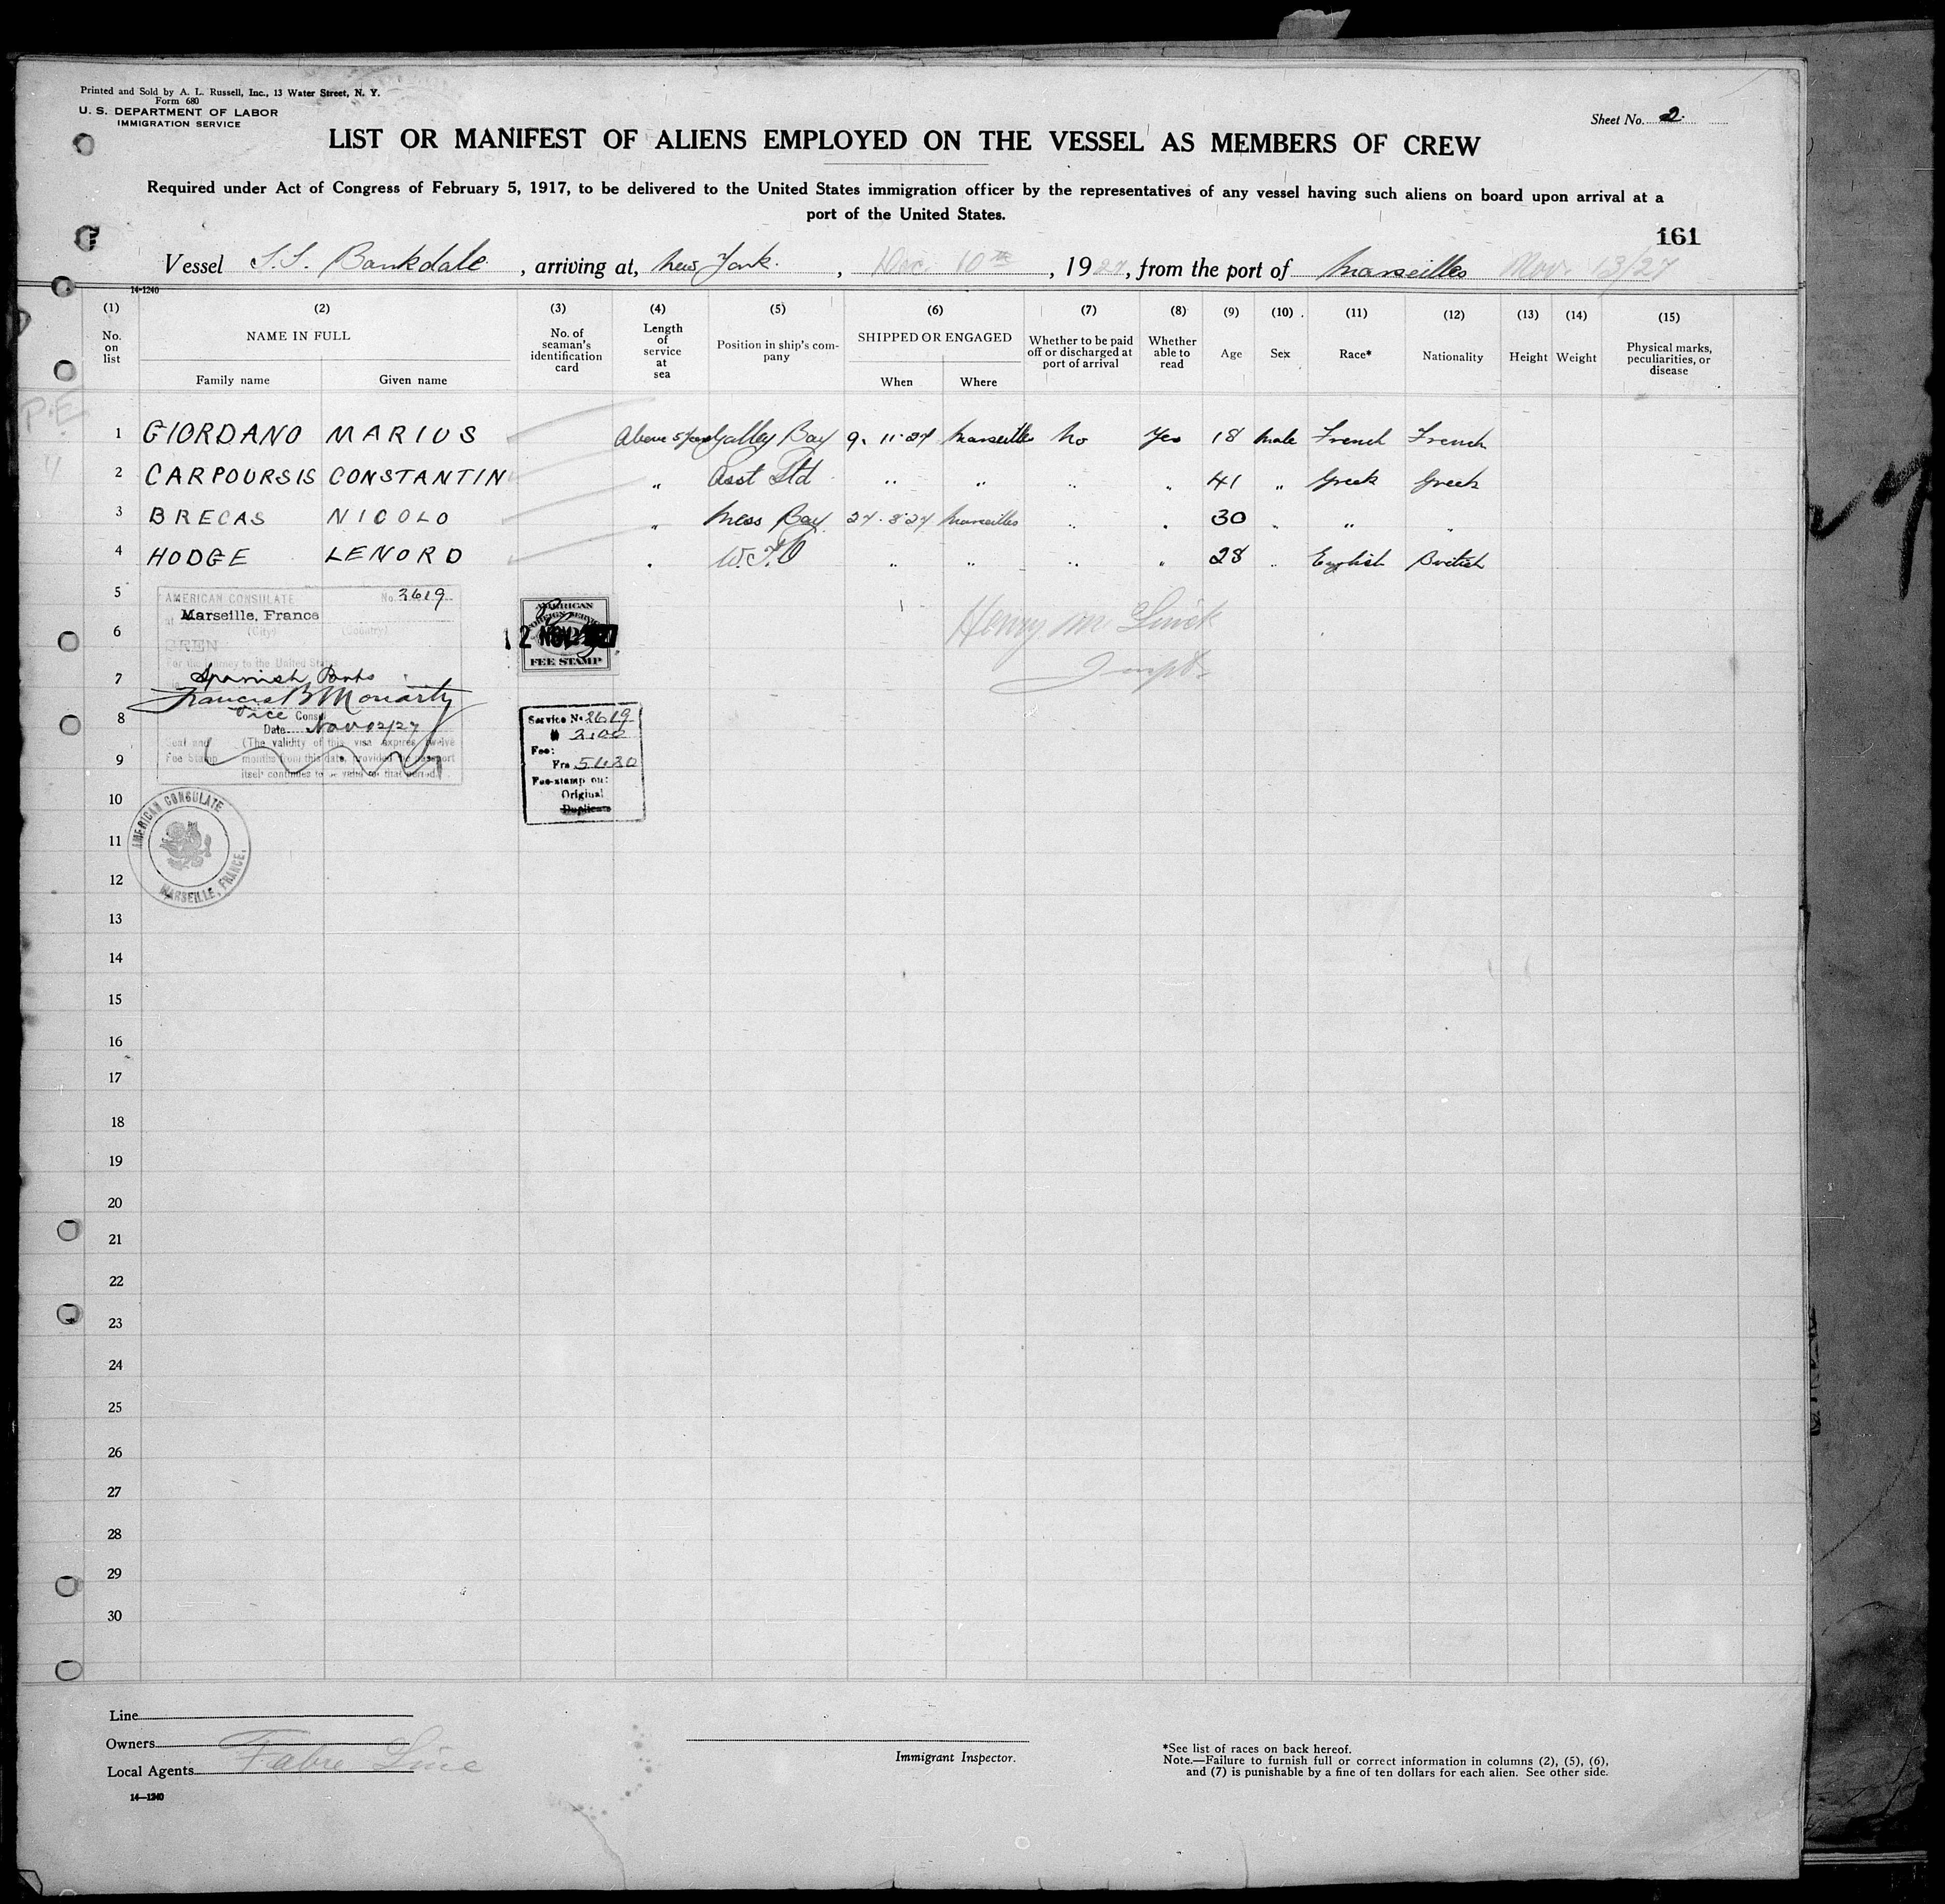 Printed and Sold by A. L. Russell, Inc., 13 Water Street, N. Y.
Form 680
U. S. DEPARTMENT OF LABOR
IMMIGRATION SERVICE
Sheet No. 2.
LIST OR MANIFEST OF ALIENS EMPLOYED ON THE VESSEL AS MEMBERS OF CREW
Required under Act of Congress of February 5, 1917, to be delivered to the United States immigration officer by the representatives of any vessel having such aliens on board upon arrival at a
port of the United States.
161
Vessel S.S. Bankdale, arriving at, New York., Dec. 10th, 1927, from the port of Marseilles Nov. 13/27
14-1240
(1) (2) (3) (4) (5) (6) (7) (8) (9) (10) (11) (12) (13) (14) (15)
No. on list NAME IN FULL Family name Given name No. of seaman's identification card Length of service at sea Position in ship's company SHIPPED OR ENGAGED When Where Whether to be paid off or discharged at port of arrival Whether able to read Age Sex Race* Nationality Height Weight Physical marks, peculiarities, or disease
P.E.
1 GIORDANO MARIUS Above 5 years Galley Boy 9. 11.27 Marseilles No Yes 18 Male French French
2 CARPOURSIS CONSTANTIN " Asst Std " " " " 41 " Greek Greek
3 BRECAS NICOLO " Mess Boy 27.8.27 Marseilles " " 30 " " "
4 HODGE LENORD " W.T.O " " " " 28 " English British
5
6
7
8
9
10
11
12
13
14
15
16
17
18
19
20
21
22
23
24
25
26
27
28
29
30
AMERICAN CONSULATE No. 2619
at Marseille, France
(City) (Country)
SEEN
For the journey to the United States
Spanish Ports
Francis B Moriarty
Vice Consul
Date Nov 12/27
Seal and Fee Stamp (The validity of this visa expires twelve
months from this date, provided the passport
itself continues to be valid for that period.)
AMERICAN CONSULATE
MARSEILLE, FRANCE.
AMERICAN
FOREIGN SERVICE
12 NOV 1927
FEE STAMP
Service No 2619
$ 2.00
Fee:
Frs 51.30
Fee-stamp on:
Original
Duplicate
Henry M
Inspt.
Line
Owners
Local Agents Fabre Line
14—1240
Immigrant Inspector.
*See list of races on back hereof.
Note.—Failure to furnish full or correct information in columns (2), (5), (6),
and (7) is punishable by a fine of ten dollars for each alien. See other side.